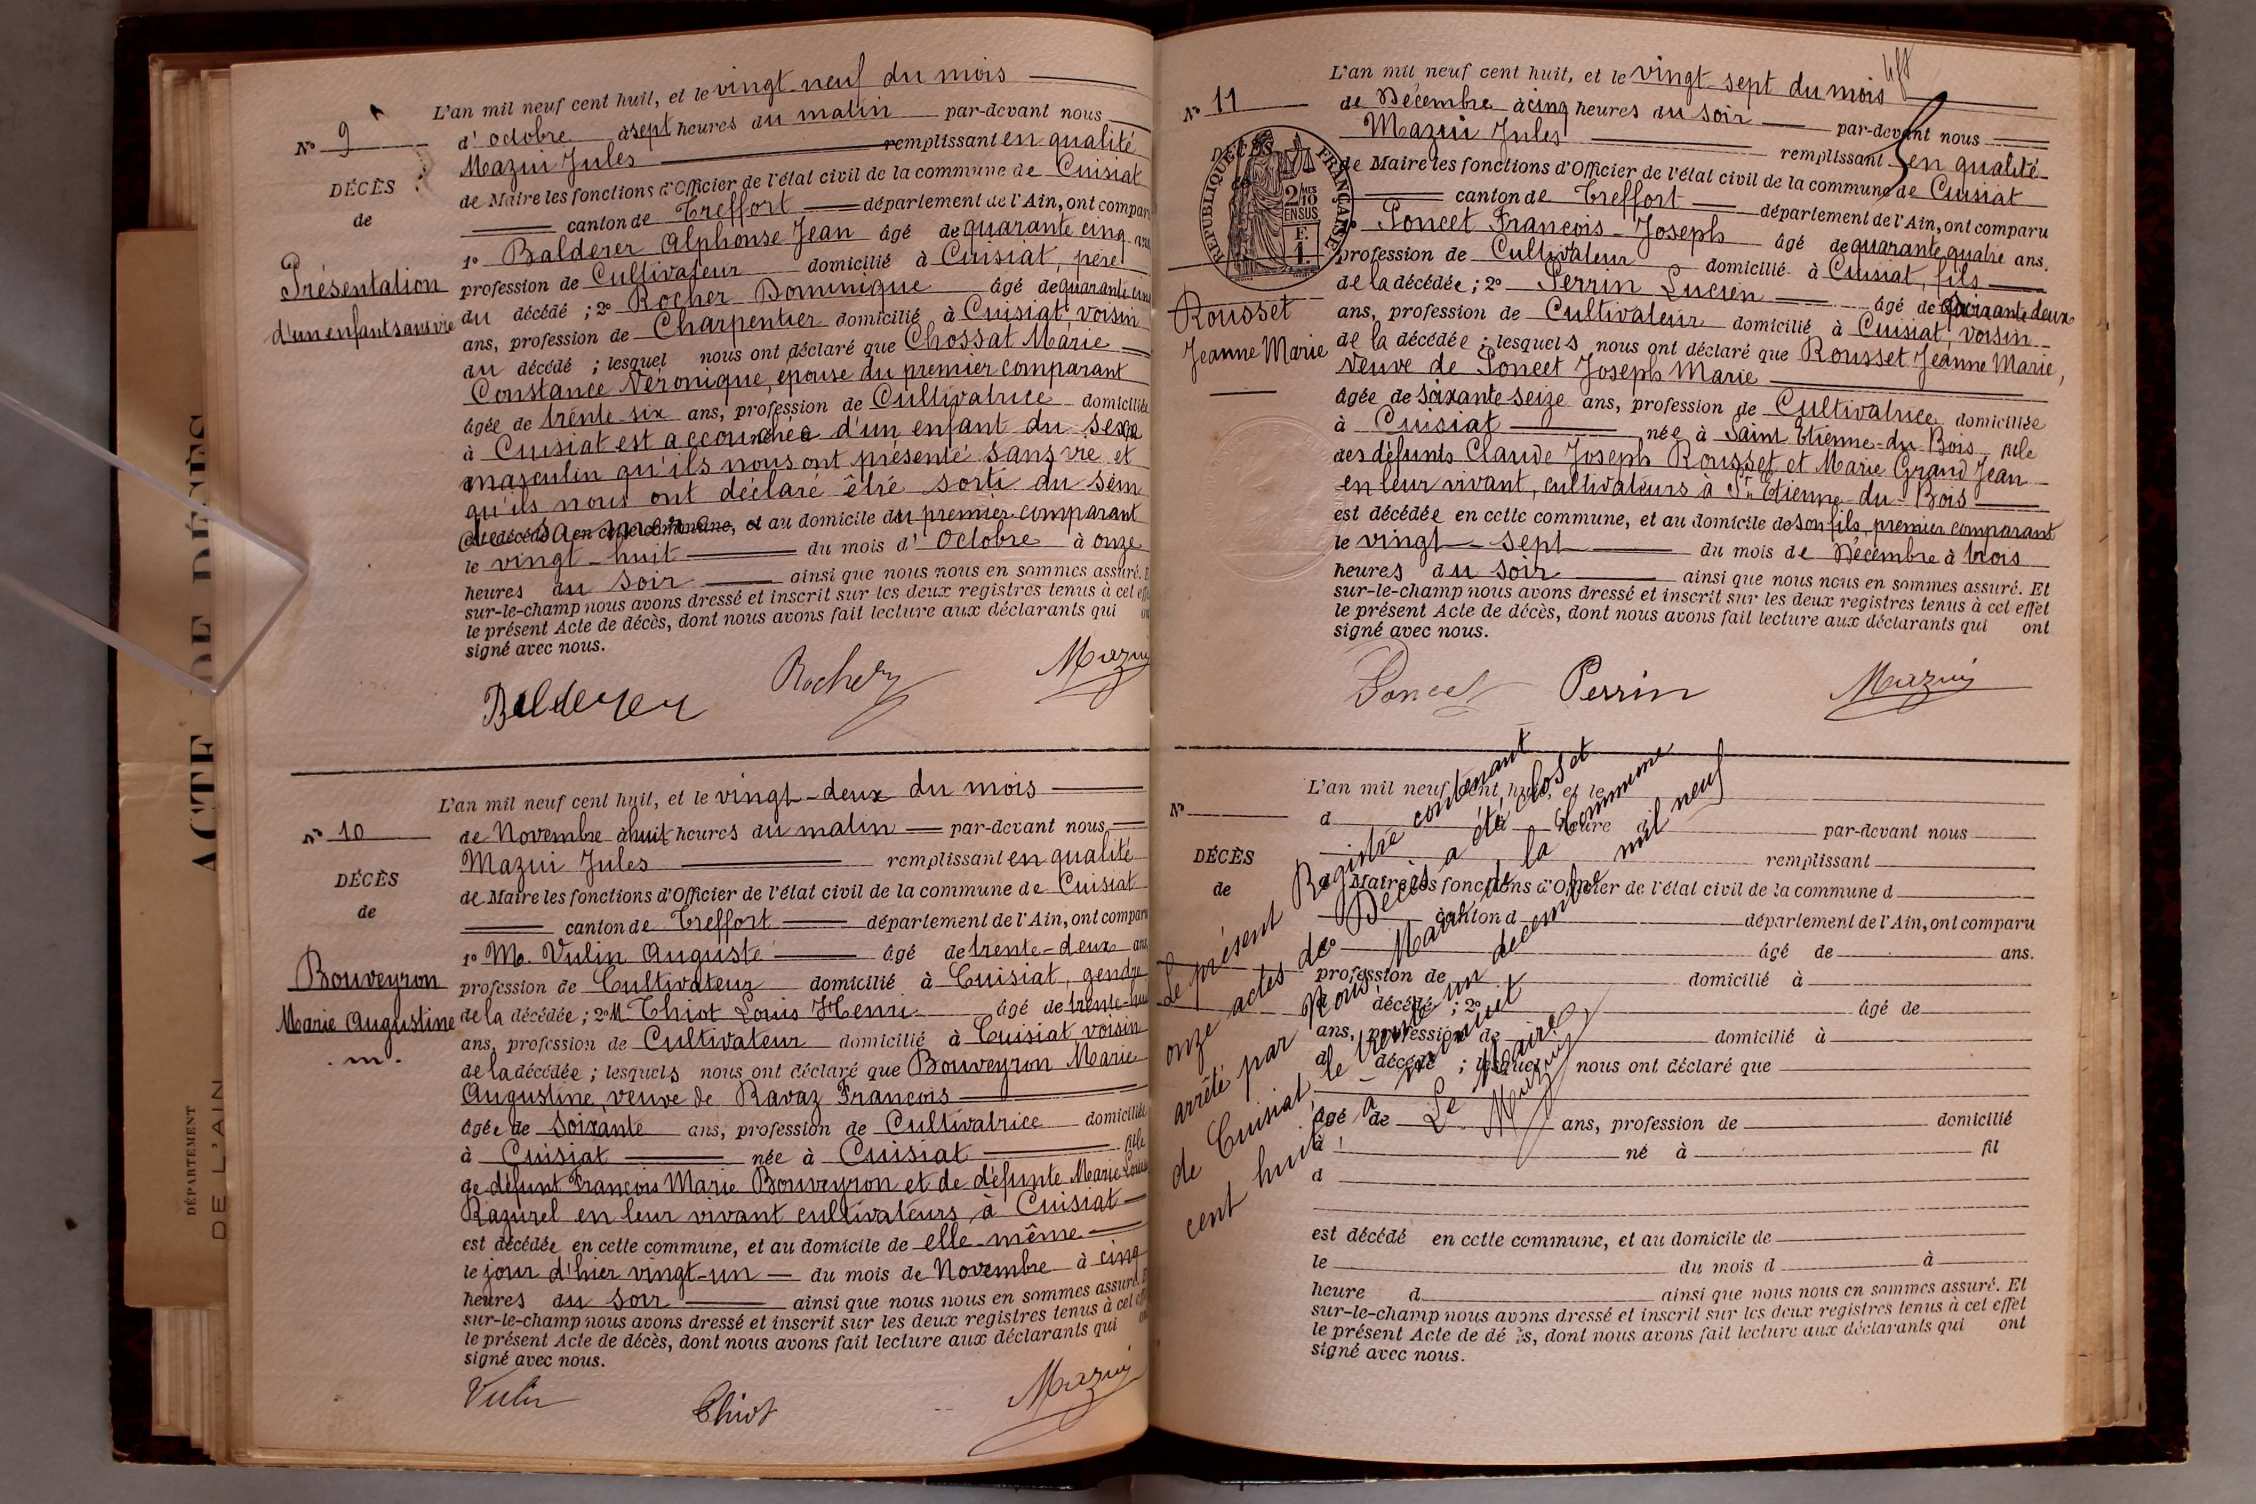 L'an mil neuf cent huit, et le vingt-neuf du mois
d'octobre à sept heures du matin par-devant nous
Mazui Jules remplissant en qualité
de Maire les fonctions d'Officier de l'état civil de la commune de Cuisiat
canton de Treffort département de l'Ain, ont compar
1° Balderer Alphonse Jean âgé de quarante cinq ans
profession de Cultivateur domicilié à Cuisiat, père
du décédé ; 2° Rocher Dominique âgé de quarante cinq
ans, profession de Charpentier domicilié à Cuisiat, voisin
du décédé ; lesquel nous ont déclaré que Chossat Marie
Constance Véronique, épouse du premier comparant
âgée de trente six ans, profession de Cultivatrice domiciliée
à Cuisiat est accouchée d'un enfant du sexe
masculin qu'ils nous ont présenté sans vie et
qu'ils nous ont déclaré être sorti du sein
de sa mère au domicile du premier comparant
le vingt-huit du mois d'Octobre à onze
heures du soir ainsi que nous nous en sommes assuré. E
sur-le-champ nous avons dressé et inscrit sur les deux registres tenus à cet effe
le présent Acte de décès, dont nous avons fait lecture aux déclarants qui on
signé avec nous.
N° 9
DÉCÈS
de
Présentation
d'un enfant sans vie
Balderer Rocher Mazui
L'an mil neuf cent huit, et le vingt-deux du mois
de Novembre à huit heures du matin par-devant nous
Mazui Jules remplissant en qualité
de Maire les fonctions d'Officier de l'état civil de la commune de Cuisiat
canton de Treffort département de l'Ain, ont comparu
1° M. Vulin Auguste âgé de trente-deux ans
profession de Cultivateur domicilié à Cuisiat, gendre
de la décédée ; 2° M. Thiot Louis Henri âgé de trente-hui
ans, profession de Cultivateur domicilié à Cuisiat, voisin
de la décédée ; lesquels nous ont déclaré que Bouveyron Marie
Augustine, veuve de Ravaz François
âgée de soixante ans, profession de Cultivatrice domiciliée
à Cuisiat née à Cuisiat fille
de défunt François Marie Bouveyron et de défunte Marie Louise
Razurel en leur vivant cultivateurs à Cuisiat
est décédée en cette commune, et au domicile de elle-même
le jour d'hier vingt-un du mois de Novembre à cinq
heures du soir ainsi que nous nous en sommes assuré. E
sur-le-champ nous avons dressé et inscrit sur les deux registres tenus à cet eff
le présent Acte de décès, dont nous avons fait lecture aux déclarants qui on
signé avec nous.
N° 10
DÉCÈS
de
Bouveyron
Marie Augustine
Vulin Thiot Mazui
ACTE DE DÉCÈS
DÉPARTEMENT
DE L'AIN
L'an mil neuf cent huit, et le vingt-sept du mois
de Décembre à cinq heures du soir par-devant nous
Mazui Jules remplissant en qualité
de Maire les fonctions d'Officier de l'état civil de la commune de Cuisiat
canton de Treffort département de l'Ain, ont comparu
1° Poncet François-Joseph âgé de quarante quatre ans.
profession de Cultivateur domicilié à Cuisiat, fils
de la décédée ; 2° Perrin Lucien âgé de soixante deux
ans, profession de Cultivateur domicilié à Cuisiat, voisin
de la décédée ; lesquels nous ont déclaré que Rousset Jeanne Marie,
veuve de Poncet Joseph Marie
âgée de soixante seize ans, profession de Cultivatrice domiciliée
à Cuisiat née à Saint Etienne-du-Bois fille
des défunts Claude Joseph Rousset et Marie Grand Jean
en leur vivant, cultivateurs à St Etienne-du-Bois
est décédée en cette commune, et au domicile de son fils, premier comparant
le vingt-sept du mois de Décembre à trois
heures du soir ainsi que nous nous en sommes assuré. Et
sur-le-champ nous avons dressé et inscrit sur les deux registres tenus à cet effet
le présent Acte de décès, dont nous avons fait lecture aux déclarants qui ont
signé avec nous.
N° 11
DÉCÈS
de
RÉPUBLIQUE FRANÇAISE
2/10
EN SUS
Rousset
Jeanne Marie
Poncet Perrin Mazui
N°
DÉCÈS
de
L'an mil neuf cent huit, et le
d heure d par-devant nous
remplissant
d Maire les fonctions d'Officier de l'état civil de la commune d
canton d département de l'Ain, ont comparu
âgé de ans.
profession de domicilié à
décédé ; 2° âgé de
ans, profession de domicilié à
d décédé ; lesquel nous ont déclaré que
âgé de ans, profession de domicilié
à né à fil
d
est décédé en cette commune, et au domicile de
le du mois d à
heure d ainsi que nous nous en sommes assuré. Et
sur-le-champ nous avons dressé et inscrit sur les deux registres tenus à cet effet
le présent Acte de décès, dont nous avons fait lecture aux déclarants qui ont
signé avec nous.
Le présent Registre contenant
onze actes de Décès a été clos et
arrêté par Nous, Maire de la Commune
de Cuisiat, le trente un décembre mil neuf
cent huit à minuit
Le Maire,
Mazui